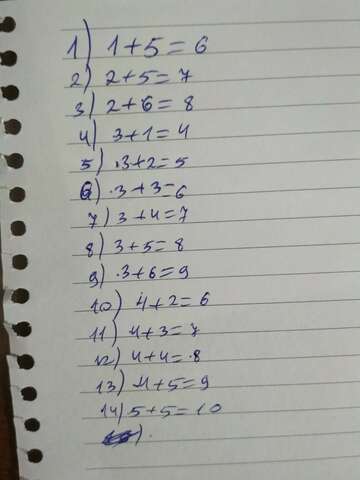 1) 1+5=6
2) 2+5=7
3) 2+6=8
4) 3+1=4
5) 3+2=5
6) 3+3=6
7) 3+4=7
8) 3+5=8
9) 3+6=9
10) 4+2=6
11) 4+3=7
12) 4+4=8
13) 4+5=9
14) 5+5=10